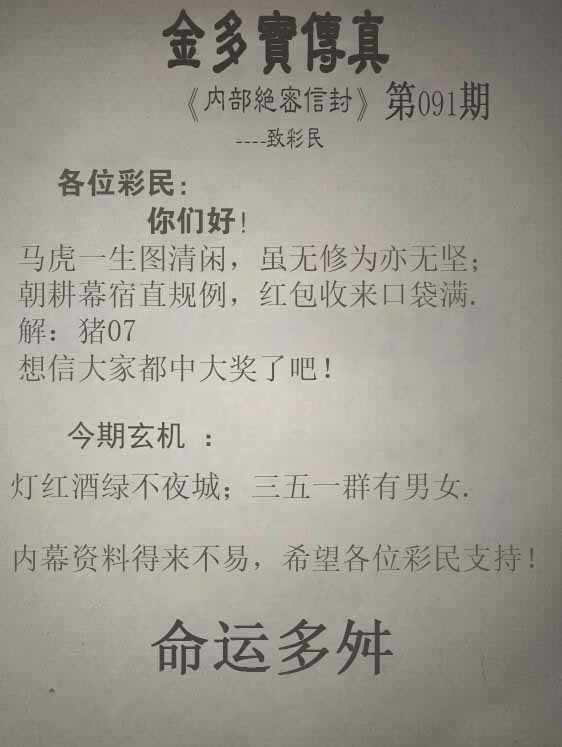 金多寳傳真
《内部絶密信封》第091期
----致彩民
各位彩民:
你们好!
马虎一生图清闲，虽无修为亦无坚;
朝耕幕宿直规例，红包收来口袋满.
解：猪07
想信大家都中大奖了吧!
今期玄机 :
灯红酒绿不夜城；三五一群有男女.
内幕资料得来不易，希望各位彩民支持!
命运多舛